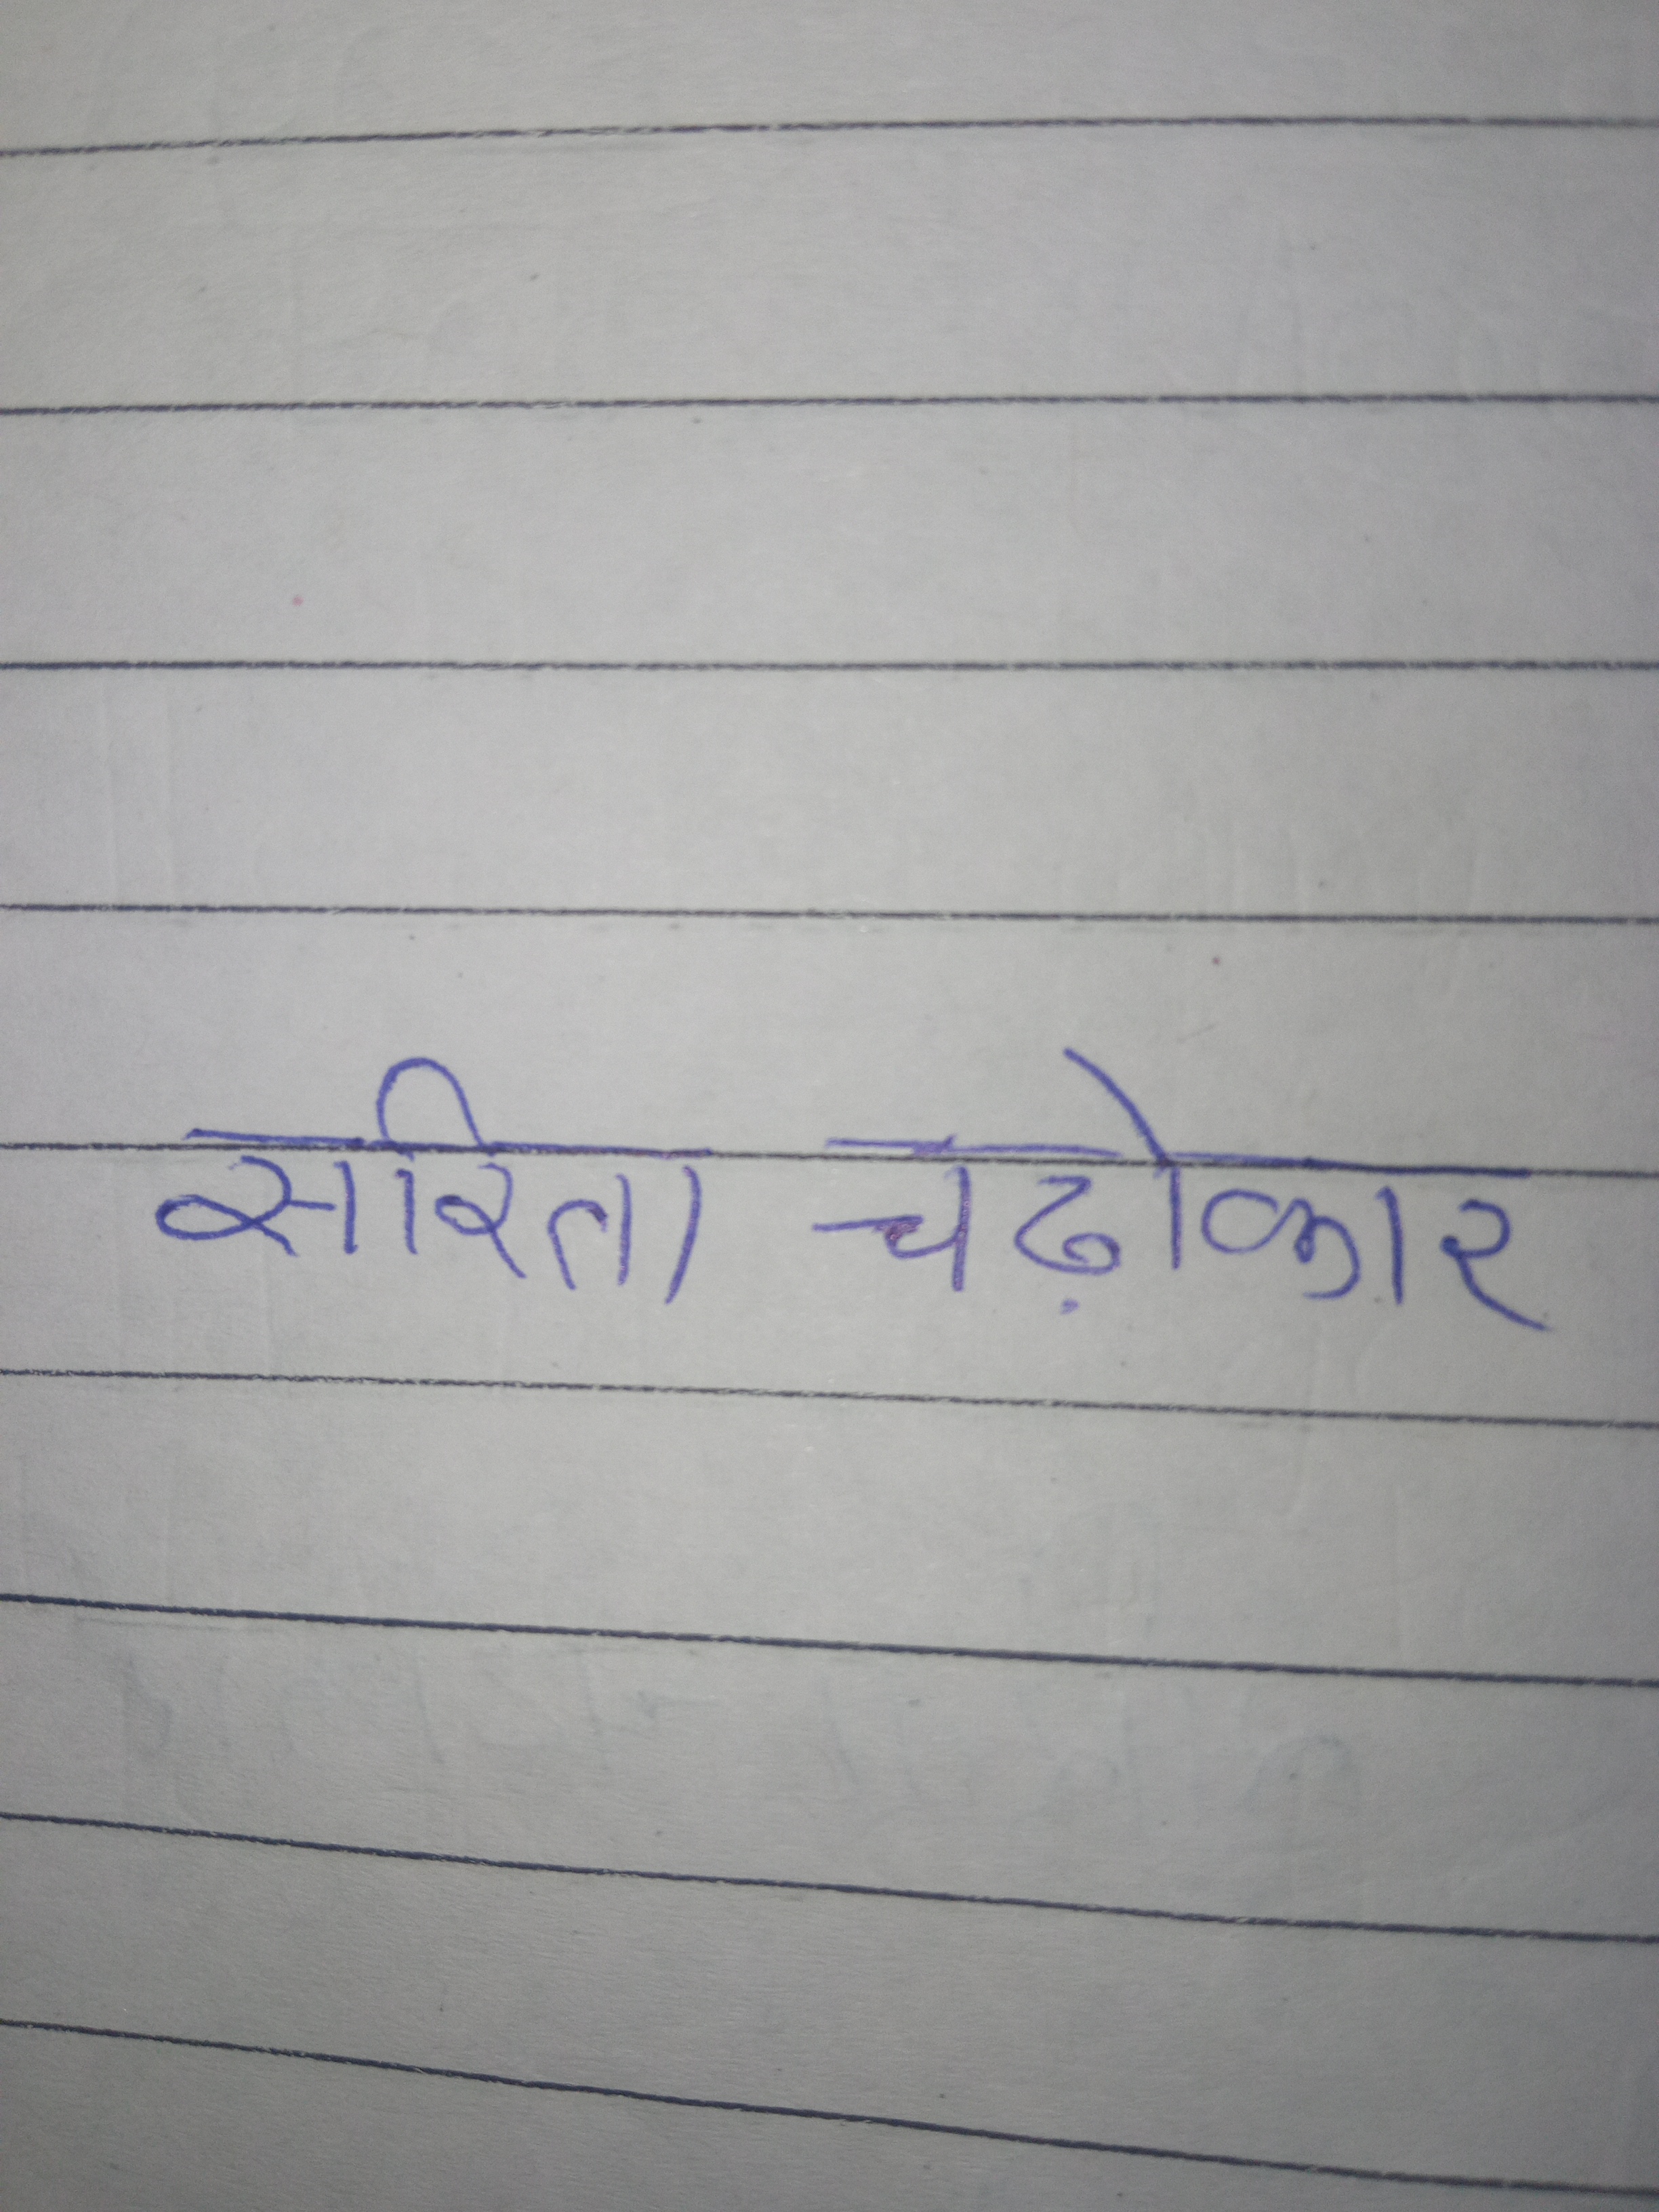 सरिता चढ़ोकार